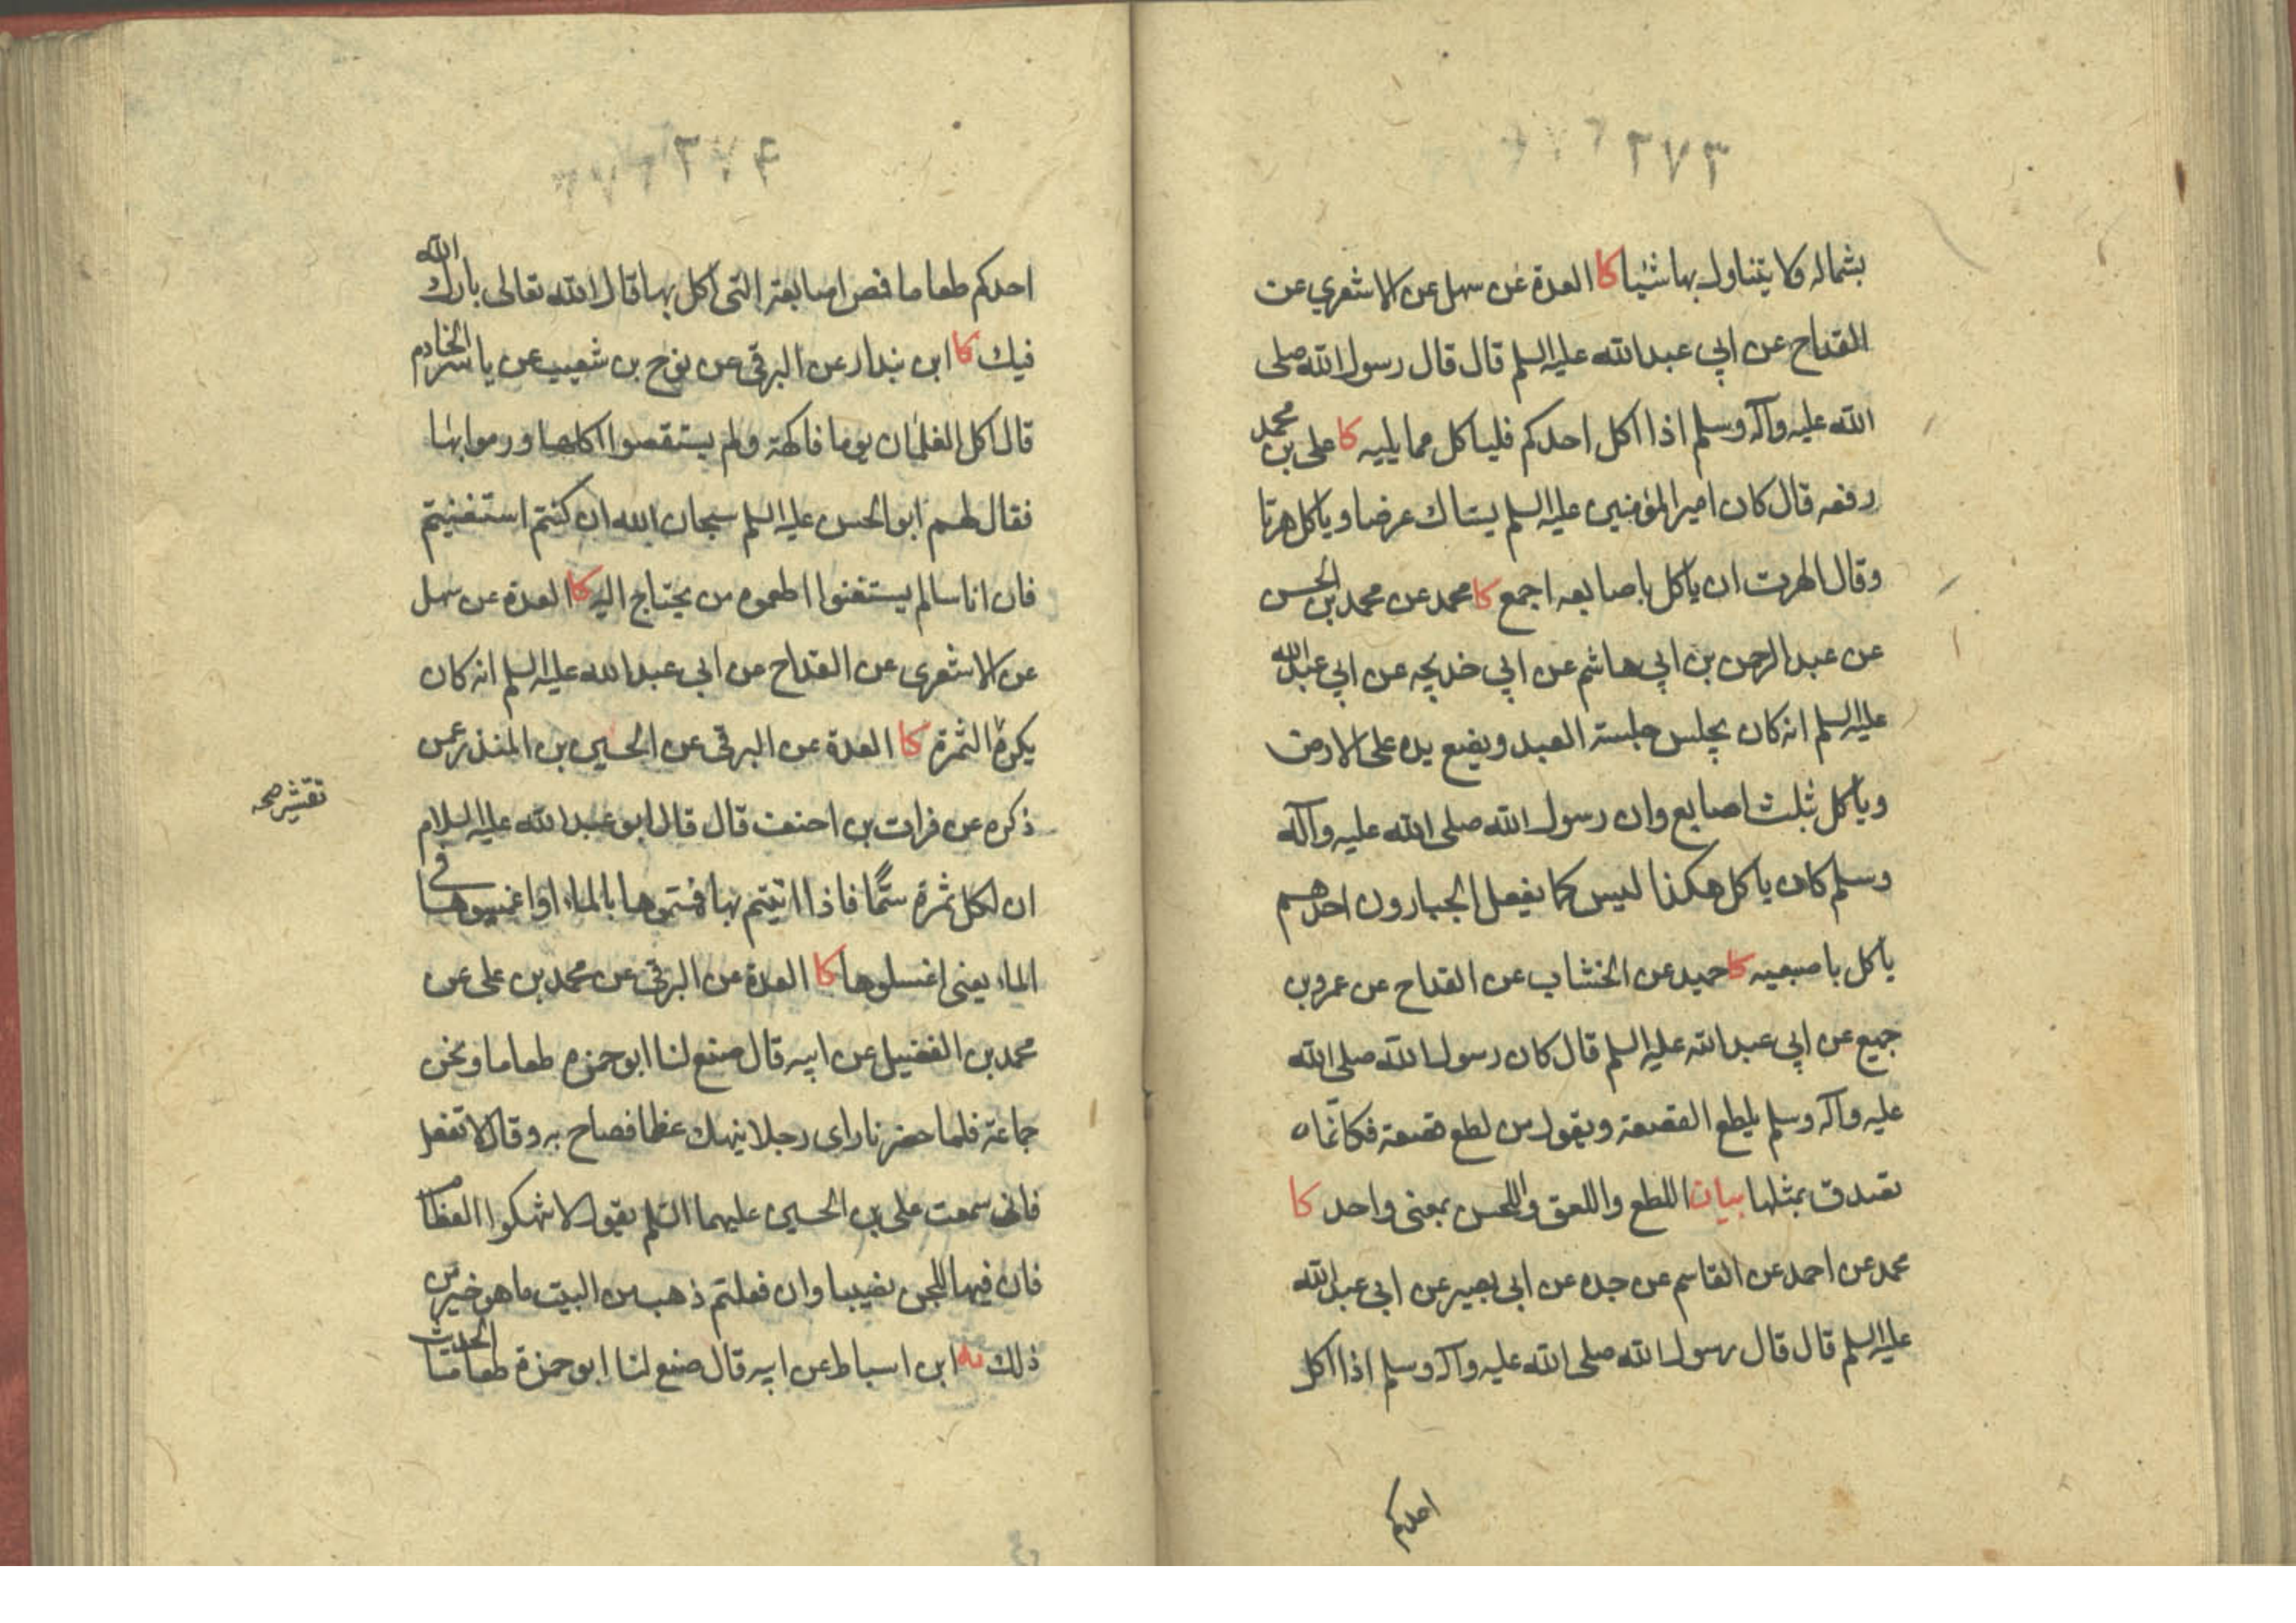 ٢٧٣
بشماله ولا يتناول بها شيئا كا العدة عن سهل عن الاشعري عن
القداح عن ابي عبد الله عليه السلم قال قال رسول الله صلى
الله عليه وآله وسلم اذا اكل احدكم فلياكل مما يليه كا على بن محمد
رفعه قال كان امير المؤمنين عليه السلم يستاك عرضا وياكل هرتا
وقال الهرت ان ياكل باصابعه اجمع كا محمد عن محمد بن الحسن
عن عبد الرحمن بن ابي هاشم عن ابي خديجه عن ابي عبد الله
عليه السلم انه كان يجلس جلسة العبد ويضع يده على الارض
وياكل بثلث اصابع وان رسول الله صلى الله عليه وآله
وسلم كان ياكل هكذا ليس كما يفعل الجبارون احدهم
ياكل باصبعيه كا حميد عن الخشاب عن القداح عن عمرو بن
جميع عن ابي عبد الله عليه السلم قال كان رسول الله صلى الله
عليه وآله وسلم يلطع القصعة ويقول من لطع قصعة فكانما
تصدق بمثلها بيان اللطع واللعق واللحس بمعنى واحد كا
محمد عن احمد عن القاسم عن جده عن ابي بصير عن ابي عبد الله
عليه السلم قال قال رسول الله صلى الله عليه وآله وسلم اذا اكل
احدكم
احدكم طعاما فمص اصابعه التي اكل بها قال الله تعالى بارك الله
فيك كا ابن بندار عن البرقى عن نوح بن شعيب عن ياسر الخادم
قال اكل الغلمان يوما فاكهة ولم يستقصوا اكلها ورموا بها
فقال لهم ابو الحسن عليه السلم سبحان الله ان كنتم استغنيتم
فان اناسا لم يستغنوا اطعموه من يحتاج اليه كا العدة عن سهل
عن الاشعرى عن القداح عن ابي عبد الله عليه السلم انه كان
يكره الثمرة كا العدة عن البرقى عن الحسين بن المنذر عمن
تقشير صحـ
ذكره عن فرات بن احنف قال قال ابو عبد الله عليه السلام
ان لكل ثمرة سمّا فاذا اتيتم بها فمسوها بالماء او اغمسوها في
الماء يعنى اغسلوها كا العدة عن البرقى عن محمد بن على عن
محمد بن الفضيل عن ابيه قال صنع لنا ابو حمزه طعاما ونحن
جماعة فلما حضرنا راى رجلا ينهك عظما فصاح به وقال لا تفعل
فانى سمعت على بن الحسين عليهما السلم يقول لا تنهكوا العظام
فان فيها للجن نصيبا وان فعلتم ذهب من البيت ما هو خير من
ذلك يه ابن اسباط عن ابيه قال صنع لنا ابو حمزة طعاما الحديث